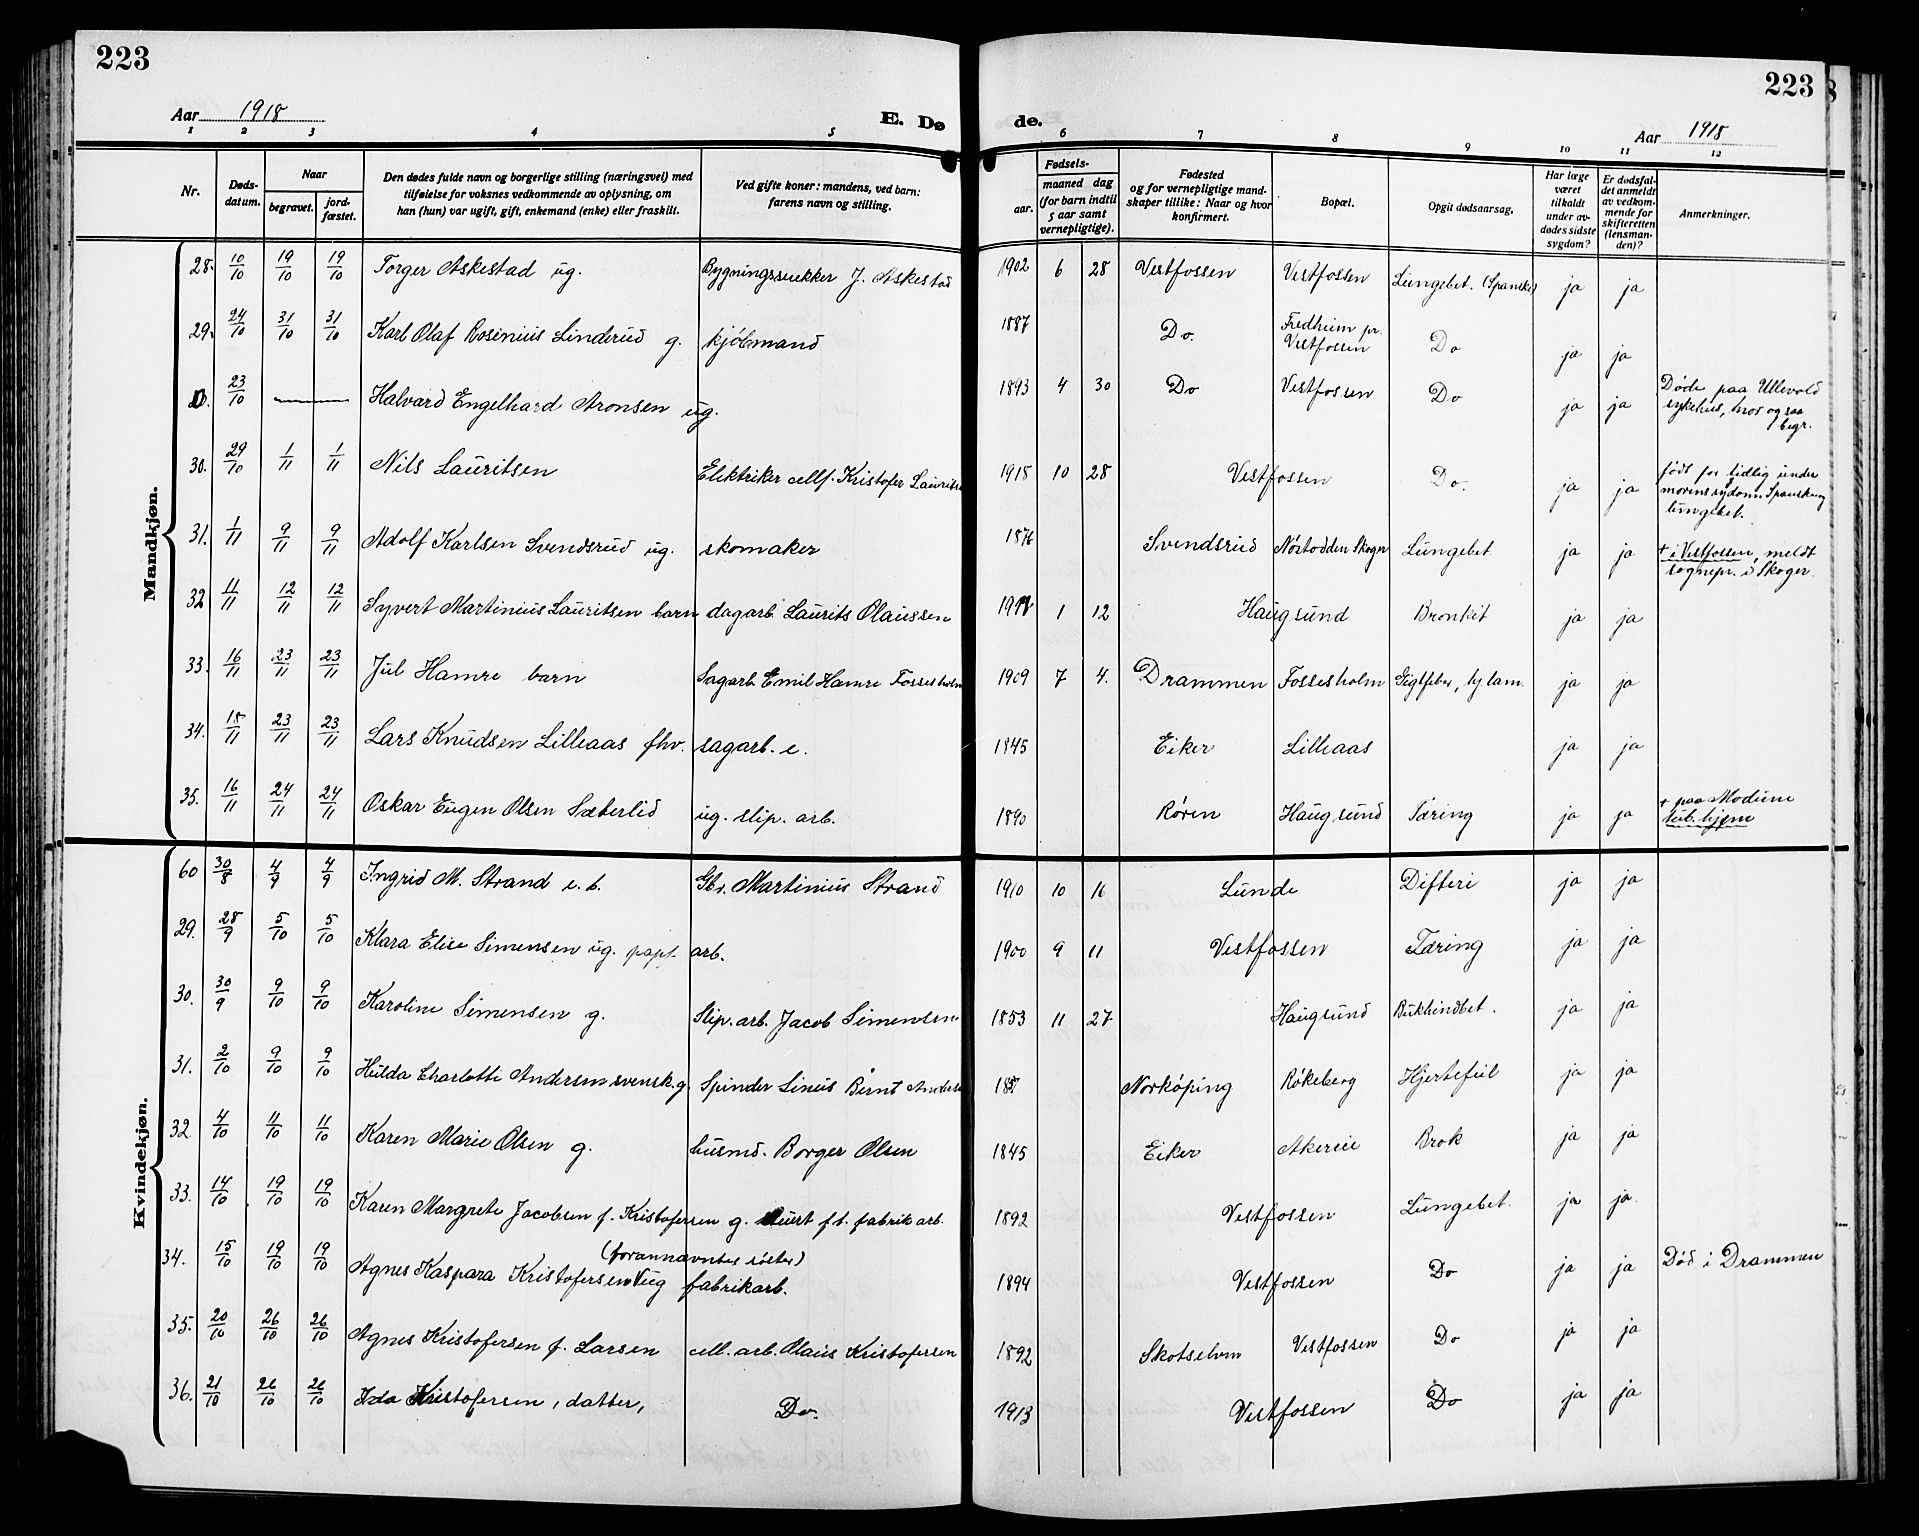 223
223
Aar 1918
E. Dø
de.
Aar 1918
1 2 3 4 5 6 7 8 9 10 11 12
Nr.
Døds-
datum.
Naar
begravet.
jord-
fæstet.
Den dødes fulde navn og borgerlige stilling (næringsvei) med
tilføielse for voksnes vedkommende av oplysning, om
han (hun) var ugift, gift, enkemand (enke) eller fraskilt.
Ved gifte koner: mandens, ved barn:
farens navn og stilling.
Fødsels-
aar.
maaned dag
(for barn indtil
5 aar samt
vernepligtige).
Fødested
og for vernepligtige mand-
skaper tillike: Naar og hvor
konfirmert.
Bopæl.
Opgit dødsaarsag.
Har læge
været
tilkaldt
under av-
dødes sidste
sygdom?
Er dødsfal-
det anmeldt
av vedkom-
mende for
skifteretten
(lensman-
den)?
Anmerkninger.
Mandkjøn.
28. 10/10 19/10 19/10 Torger Askestad ug. Bygningssnekker J. Askestad 1902 6 28 Vestfossen Vestfossen Lungebet. (Spanske) ja ja
29. 24/10 31/10 31/10 Karl Olaf Rosenius Linderud g. kjøbmand 1887 Do. Fredheim pr. Vestfossen Do ja ja
D. 23/10 — Halvard Engelhard Aronsen ug. 1893 4 30 Do Vestfossen Do ja ja Døde paa Ullevold
sykehus, hvor ogsaa
begr.
30. 29/10 1/11 1/11 Nils Lauritsen Elektriker cellf. Kristofer Lauritse 1918 10 28 Vestfossen Do. ja ja født for tidlig under
morens sydom. Spansksyg
lungebet.
31. 1/11 9/11 9/11 Adolf Karlsen Svendsrud ug. skomaker 1876 Svendsrud Nøstodden Skoger Lungebet ja ja + i Vestfossen, meldt
sognepr. i Skoger.
32 11/11 12/11 12/11 Syvert Martinius Lauritsen barn dagarb. Laurits Olaussen 1 12 Haugsund Bronkit ja ja
33. 16/11 23/11 23/11 Jul Hamre barn Sagarb. Emil Hamre Fossesholm 1909 7 4. Drammen Fossesholm Gigtfeber, hj.lam. ja ja
34. 18/11 23/11 23/11 Lars Knudsen Lilleaas fhv. sagarb. e. 1845 Eiker Lilleaas ja ja
35. 16/11 24/11 24/11 Oskar Eugen Olsen Sæterlid ug. slip. arb. 1890 Røren Haugsund Tæring ja ja + paa Modum
tub. hjem
Kvindekjøn.
60 30/8 4/9 4/9 Ingrid M. Strand e. b. Gbr. Martinius Strand 1910 10 16 Lunde Difteri ja ja
29. 28/9 5/10 5/10 Klara Elise Simensen ug. papf. arb. 1900 9 11 Vestfossen Tæring ja ja
30. 30/9 9/10 9/10 Karoline Simensen g. Slip. arb. Jacob Simensen 1853 11 27 Haugsund Bukhindbet. ja ja
31. 2/10 9/10 9/10 Hulda Charlotte Andersen svensk. g. Spinder Linus Bernt Anders Norkøping Røkeberg Hjertefeil ja ja
32 4/10 11/10 11/10 Karen Marie Olsen g. husmd. Borger Olsen 1845 Eiker Akereie Brok ja ja
33. 14/10 19/10 19/10 Karen Margrete Jacobsen f. Kristofersen g. f. t. fabrik arb. 1892 Vestfossen Lungebet. ja ja
34. 15/10 19/10 19/10 Agnes Kaspara Kristofersen (forannævntes søster) ug fabrikarb. 1894 Vestfossen Do ja ja Død i Drammen
35. 20/10 26/10 26/10 Agnes Kristofersen f. Larsen cell. arb. Olaus Kristofersen 1892 Skotselven Vestfossen Do ja ja
36. 21/10 26/10 26/10 Ida Kristofersen, datter, Do. 1913 Vestfossen Do ja ja